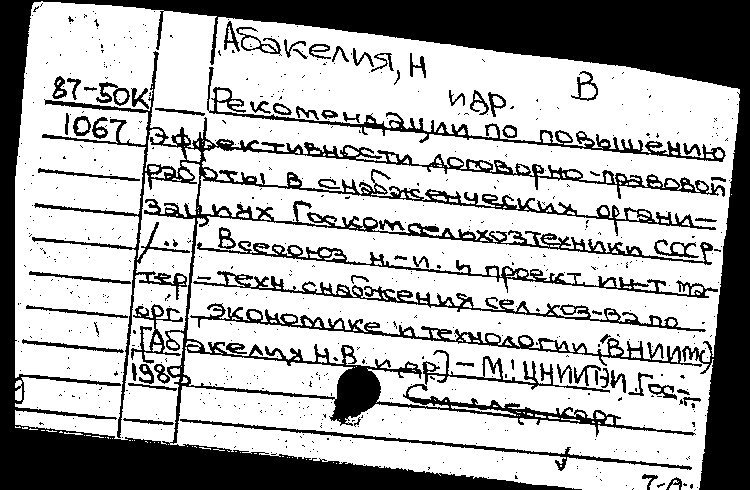 Абакелия, Н
В
и др.
87-50К
Рекомендации по повышению
1067
эффективности договорно-правовой
работы в снабженческих органи-
зациях Госкомсельхозтехники СССР
/... Всесоюз. н.-и. и проект. ин-т ма-
тер-техн. снабжения сел. хоз-ва по
орг. экономике и технологии (ВНИИМС)
[Абакелия Н.В. и др.] - М.: ЦНИИТЭИ Гос-
1985
См след. карт